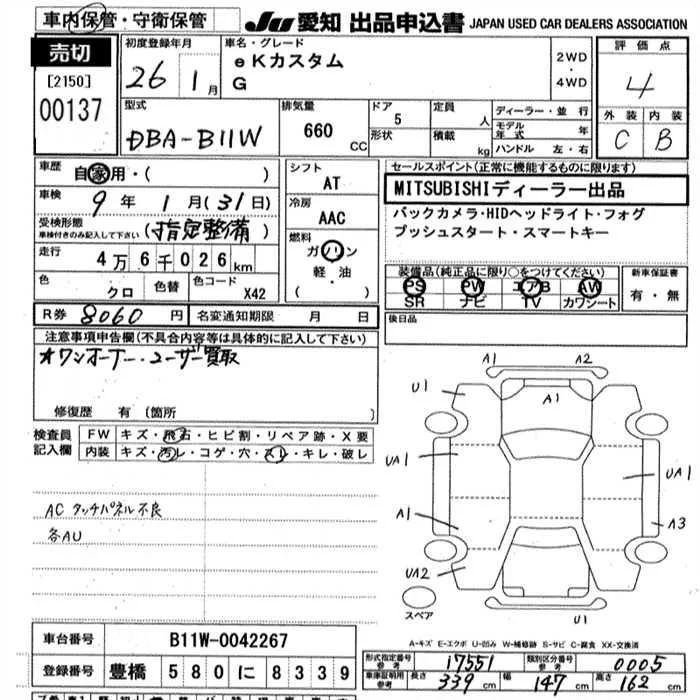 車内保管・守衛保管
JU 愛知 出品申込書 JAPAN USED CAR DEALERS ASSOCIATION
売切
[2150]
00137
初度登録年月
26 1月
車名・グレード
eKカスタム
G
2WD
・
4WD
評価点
4
外装 内装
C B
型式
DBA-B11W
排気量
660 CC
ドア 5
形状
定員 人
積載 kg
ディーラー・並行
モデル年式 年
ハンドル 左・右
車歴
自家用・( )
車検
9年 1月(31日)
受検形態
車検付きのみ記入して下さい
(指定整備)
走行
4万6千026km
色 クロ 色替 色コード X42
シフト
AT
冷房
AAC
燃料
ガソリン
軽・油
( )
セールスポイント(正常に機能するものに限ります)
MITSUBISHIディーラー出品
バックカメラ・HIDヘッドライト・フォグ
プッシュスタート・スマートキー
装備品(純正品に限り○をつけてください)
PS PW エアB AW
SR ナビ TV カワシート
新車保証書
有・無
R券 8060円 名変通知期限 月 日
後日品
注意事項申告欄(不具合内容等は具体的に記入して下さい)
★ワンオーナー・ユーザー買取
修復歴 有(箇所 )
検査員
記入欄
FW キズ・飛石・ヒビ割・リペア跡・X要
内装 キズ・汚レ・コゲ・穴・スレ・キレ・破レ
AC タッチパネル不良
各AU
A1 A2
U1
A1
UA1
UA1
A1
A3
UA2
U1
スペア
A-キズ E-エクボ U-凹み W-補修跡 S-サビ C-腐食 XX-交換済
車台番号 B11W-0042267
登録番号 豊橋 580 に 8339
形式指定番号 参考 17551 類別区分番号 参考 0005
車庫証明用 参考 長さ 339cm 幅 147cm 高さ 162cm